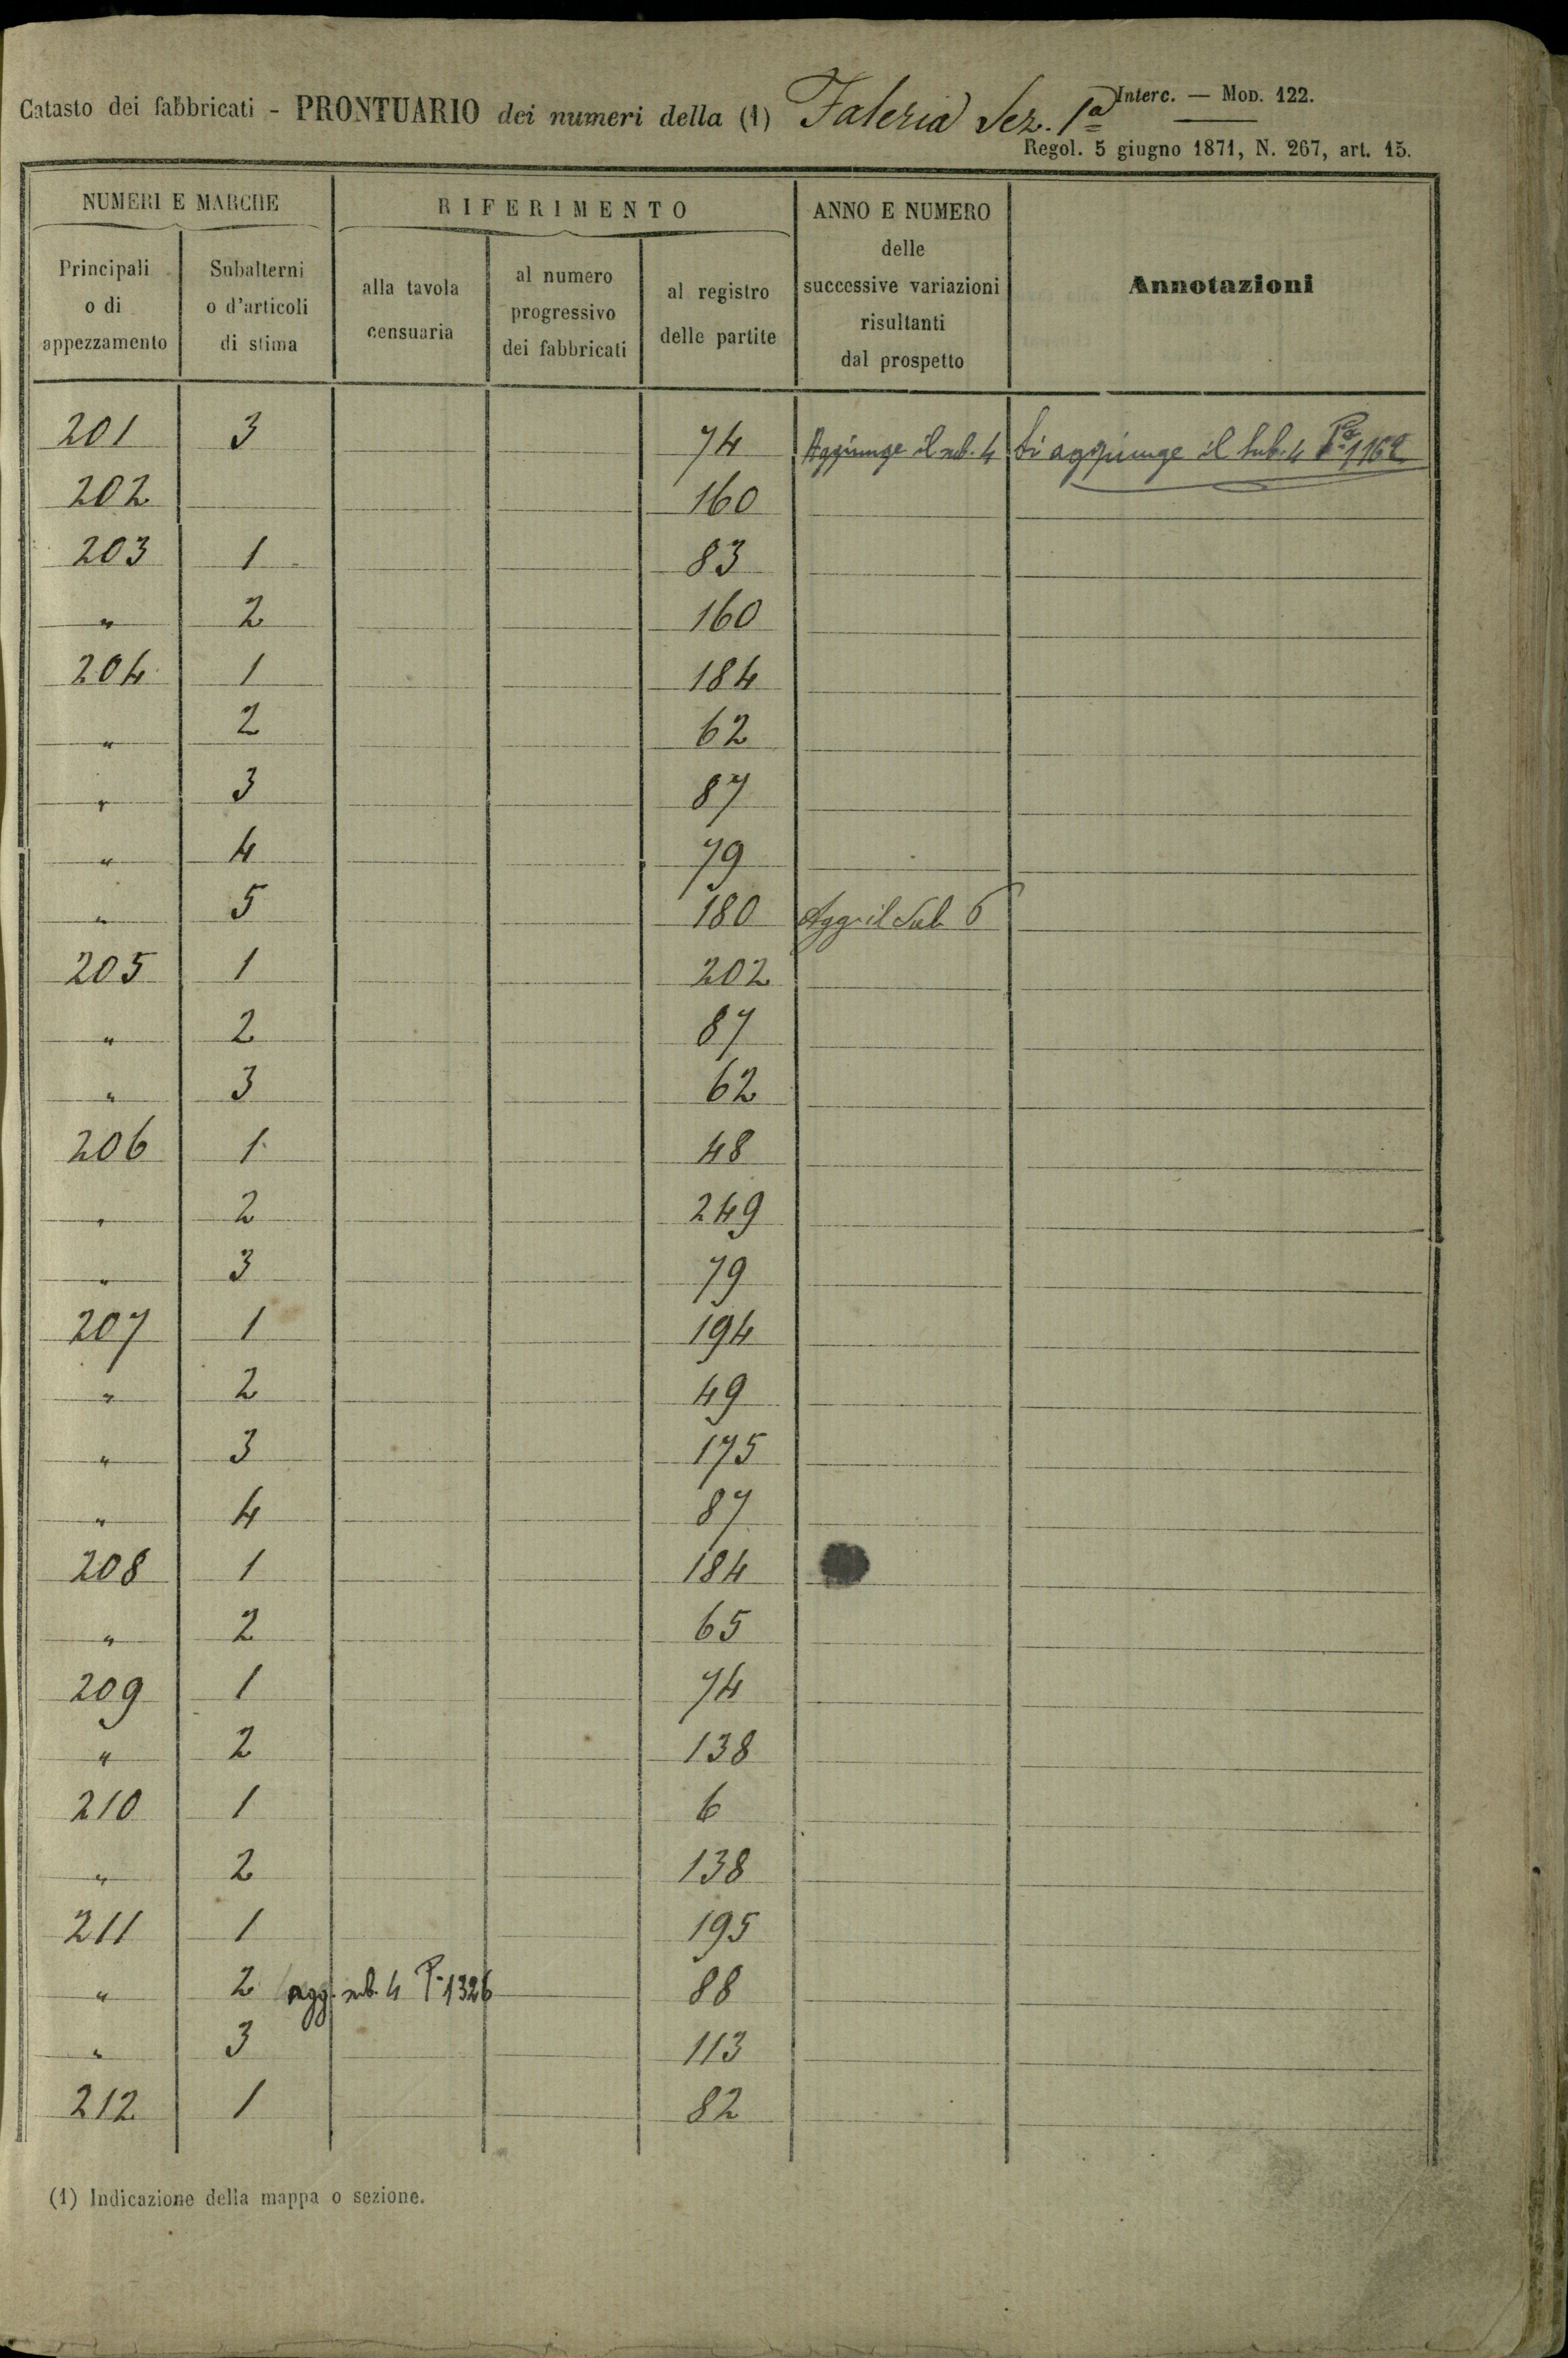 Catasto dei fabbricati - PRONTUARIO dei numeri della (1) Faleria Sez. 1ª
Interc. — Mod. 122.
Regol. 5 giugno 1871, N. 267, art. 15.
NUMERI E MARCHE
RIFERIMENTO
ANNO E NUMERO
delle
successive variazioni
risultanti
dal prospetto
Annotazioni
Principali
o di
appezzamento
Subalterni
o d'articoli
di stima
alla tavola
censuaria
al numero
progressivo
dei fabbricati
al registro
delle partite
201 3 74 Aggiunge il sub. 4 Si aggiunge il Sub. 4 Pª 1162
202 160
203 1 83
" 2 160
204 1 184
" 2 62
" 3 87
" 4 79
" 5 180 Agg. il Sub 6
205 1 202
" 2 87
" 3 62
206 1 48
" 2 249
" 3 79
207 1 194
" 2 49
" 3 175
" 4 87
208 1 184
" 2 65
209 1 74
" 2 138
210 1 6
" 2 138
211 1 195
" 2 agg. sub. 4 P. 1326 88
" 3 113
212 1 82
(1) Indicazione della mappa o sezione.